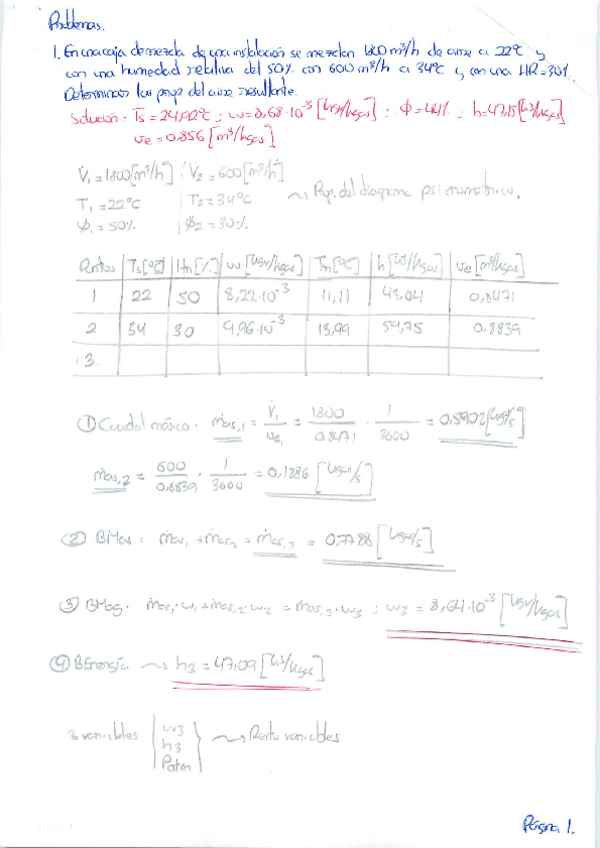 Problemas.
1. En una caja de mezcla de una instalación se mezclan 1800 m³/h de aire a 22ºC y
con una humedad relativa del 50% con 600 m³/h a 34ºC y con una HR=30%.
Determinar las prop del aire resultante.
Solución: Ts = 24,92ºC ; w=8,68·10⁻³ [kgv/kgas] ; φ=44% ; h=47,15 [kJ/kgas]
ve = 0,856 [m³/kgas]
V̇₁ = 1800 [m³/h] ; V̇₂ = 600 [m³/h]
T₁ = 22ºC ; T₂ = 34ºC ~> Prop. del diagrama psicrométrico.
φ₁ = 50% ; φ₂ = 30%
Puntos Ts [ºC] Hr [%] w [kgv/kgas] Th [ºC] h [kJ/kgas] ve [m³/kgas]
1 22 50 8,22·10⁻³ 43,04 0,8471
2 34 30 9,96·10⁻³ 59,75 0.8839
3
① Caudal másico: ṁas,1 = V̇₁/ve₁ = 1800/0.8471 · 1/3600 = 0,5902 [kgas/s]
ṁas,2 = 600/0.8839 · 1/3600 = 0,1886 [kgas/s]
② BMas: ṁas₁ + ṁas₂ = ṁas,3 = 0,7788 [kgas/s]
③ BMag. ṁas,1·w₁ + ṁas,2·w₂ = ṁas,3·w3 ; w3 = 8,64·10⁻³ [kgv/kgas]
④ BEnergía ~> h3 = 47,09 [kJ/kgas]
3 variables | w3
h3
Patm ~> Resto variables
Página 1.